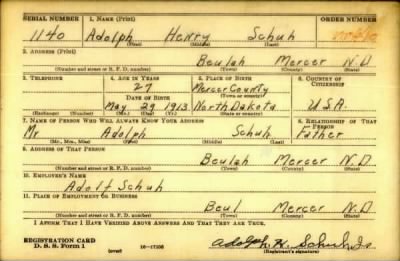 SERIAL NUMBER 1. NAME (Print) ORDER NUMBER
1140 Adolph Henry Schuh
(First) (Middle) (Last)
2. ADDRESS (Print)
Beulah Mercer N.D
(Number and street or R. F. D. number) (Town) (County) (State)
3. TELEPHONE 4. AGE IN YEARS 5. PLACE OF BIRTH 6. COUNTRY OF CITIZENSHIP
27 Mercer County
(Town or county)
DATE OF BIRTH
May 29 1913 North Dakota U.S.A.
(Exchange) (Number) (Mo.) (Day) (Yr.) (State or country)
7. NAME OF PERSON WHO WILL ALWAYS KNOW YOUR ADDRESS 8. RELATIONSHIP OF THAT PERSON
Mr Adolph Schuh Father
(Mr., Mrs., Miss) (First) (Middle) (Last)
9. ADDRESS OF THAT PERSON
Beulah Mercer N.D
(Number and street or R. F. D. number) (Town) (County) (State)
10. EMPLOYER'S NAME
Adolf Schuh
11. PLACE OF EMPLOYMENT OR BUSINESS
Beul Mercer N.D
(Number and street or R. F. D. number) (Town) (County) (State)
I AFFIRM THAT I HAVE VERIFIED ABOVE ANSWERS AND THAT THEY ARE TRUE.
REGISTRATION CARD
D. S. S. Form 1 (over) Adolph H. Schuh Jr.
(Registrant's signature)